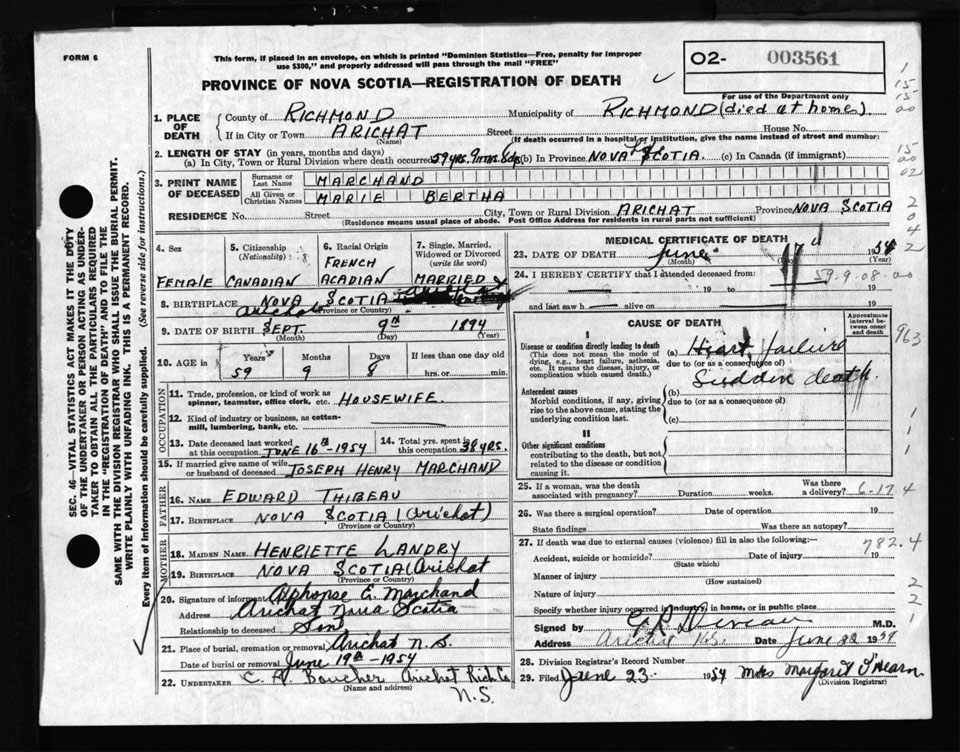 FORM 6
This form, if placed in an envelope, on which is printed "Dominion Statistics—Free, penalty for improper
use $300," and properly addressed will pass through the mail "FREE"
PROVINCE OF NOVA SCOTIA—REGISTRATION OF DEATH
O2- 003561
For use of the Department only
1. PLACE OF DEATH
County of RICHMOND Municipality of RICHMOND (died at home)
If in City or Town ARICHAT Street House No.
(Name) (If death occurred in a hospital or institution, give the name instead of street and number)
2. LENGTH OF STAY (in years, months and days)
(a) In City, Town or Rural Division where death occurred 59 yrs. 9 mts. 8 dys (b) In Province NOVA SCOTIA. (c) In Canada (if immigrant)
3. PRINT NAME OF DECEASED
Surname or Last Name MARCHAND
All Given or Christian Names MARIE BERTHA
RESIDENCE No. Street City, Town or Rural Division ARICHAT Province NOVA SCOTIA
(Residence means usual place of abode. Post Office Address for residents in rural parts not sufficient)
4. Sex FEMALE
5. Citizenship (Nationality) CANADIAN
6. Racial Origin FRENCH ACADIAN
7. Single, Married, Widowed or Divorced (write the word) MARRIED
8. BIRTHPLACE NOVA SCOTIA Arichat
(Province or Country)
9. DATE OF BIRTH SEPT. 9th 1894
(Month) (Day) (Year)
10. AGE in Years 59 Months 9 Days 8 If less than one day old hrs. or min.
OCCUPATION
11. Trade, profession, or kind of work as spinner, teamster, office clerk, etc. HOUSEWIFE.
12. Kind of industry or business, as cotton-mill, lumbering, bank, etc.
13. Date deceased last worked at this occupation JUNE 16th-1954
14. Total yrs. spent in this occupation 38 yrs.
15. If married give name of wife or husband of deceased JOSEPH HENRY MARCHAND
FATHER
16. NAME EDWARD THIBEAU
17. BIRTHPLACE NOVA SCOTIA (Arichat)
(Province or Country)
MOTHER
18. MAIDEN NAME HENRIETTE LANDRY
19. BIRTHPLACE NOVA SCOTIA (Arichat
(Province or Country)
20. Signature of informant Alphonse E. Marchand
Address Arichat Nova Scotia
Relationship to deceased Son
21. Place of burial, cremation or removal Arichat N.S.
Date of burial or removal June 19th-1954
22. UNDERTAKER C. A. Boucher Arichat Rich. Co.
(Name and address) N.S.
MEDICAL CERTIFICATE OF DEATH
23. DATE OF DEATH June 17 1954
(Month) (Year)
24. I HEREBY CERTIFY that I attended deceased from:
19 to 19
59.9.08.00
and last saw h alive on 19
CAUSE OF DEATH
Approximate interval between onset and death
Disease or condition directly leading to death
(This does not mean the mode of dying, e.g., heart failure, asthenia, etc. It means the disease, injury, or complication which caused death.)
(a) Heart failure
due to (or as a consequence of)
Sudden death.
Antecedent causes
Morbid conditions, if any, giving rise to the above cause, stating the underlying condition last.
(b)
due to (or as a consequence of)
(c)
II
Other significant conditions
contributing to the death, but not related to the disease or condition causing it.
25. If a woman, was the death associated with pregnancy? Duration weeks. Was there a delivery? 6-17.4
26. Was there a surgical operation? Date of operation 19
State findings Was there an autopsy?
27. If death was due to external causes (violence) fill in also the following:—
782.4
Accident, suicide or homicide? Date of injury 19
(State which)
Manner of injury
(How sustained)
Nature of injury
Specify whether injury occurred in industry, in home, or in public place
Signed by M.D.
Address Arichat N.S. Date June 22 1954
28. Division Registrar's Record Number
29. Filed June 23 1954 Mrs Margaret O'Hearn
(Division Registrar)
SEC. 46—VITAL STATISTICS ACT MAKES IT THE DUTY
OF THE UNDERTAKER OR PERSON ACTING AS UNDER-
TAKER TO OBTAIN ALL THE PARTICULARS REQUIRED
IN THE "REGISTRATION OF DEATH" AND TO FILE THE
SAME WITH THE DIVISION REGISTRAR WHO SHALL ISSUE THE BURIAL PERMIT.
WRITE PLAINLY WITH UNFADING INK. THIS IS A PERMANENT RECORD.
Every item of information should be carefully supplied. (See reverse side for instructions.)
1
15
15
00
15
00
02
2
0
4
2
963
1
1
1
2
2
1